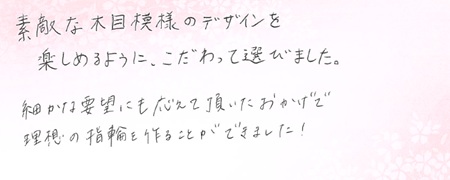 素敵な木目模様のデザインを
楽しめるように、こだわって選びました。
細かな要望にも応えて頂いたおかげで
理想の指輪を作ることができました!